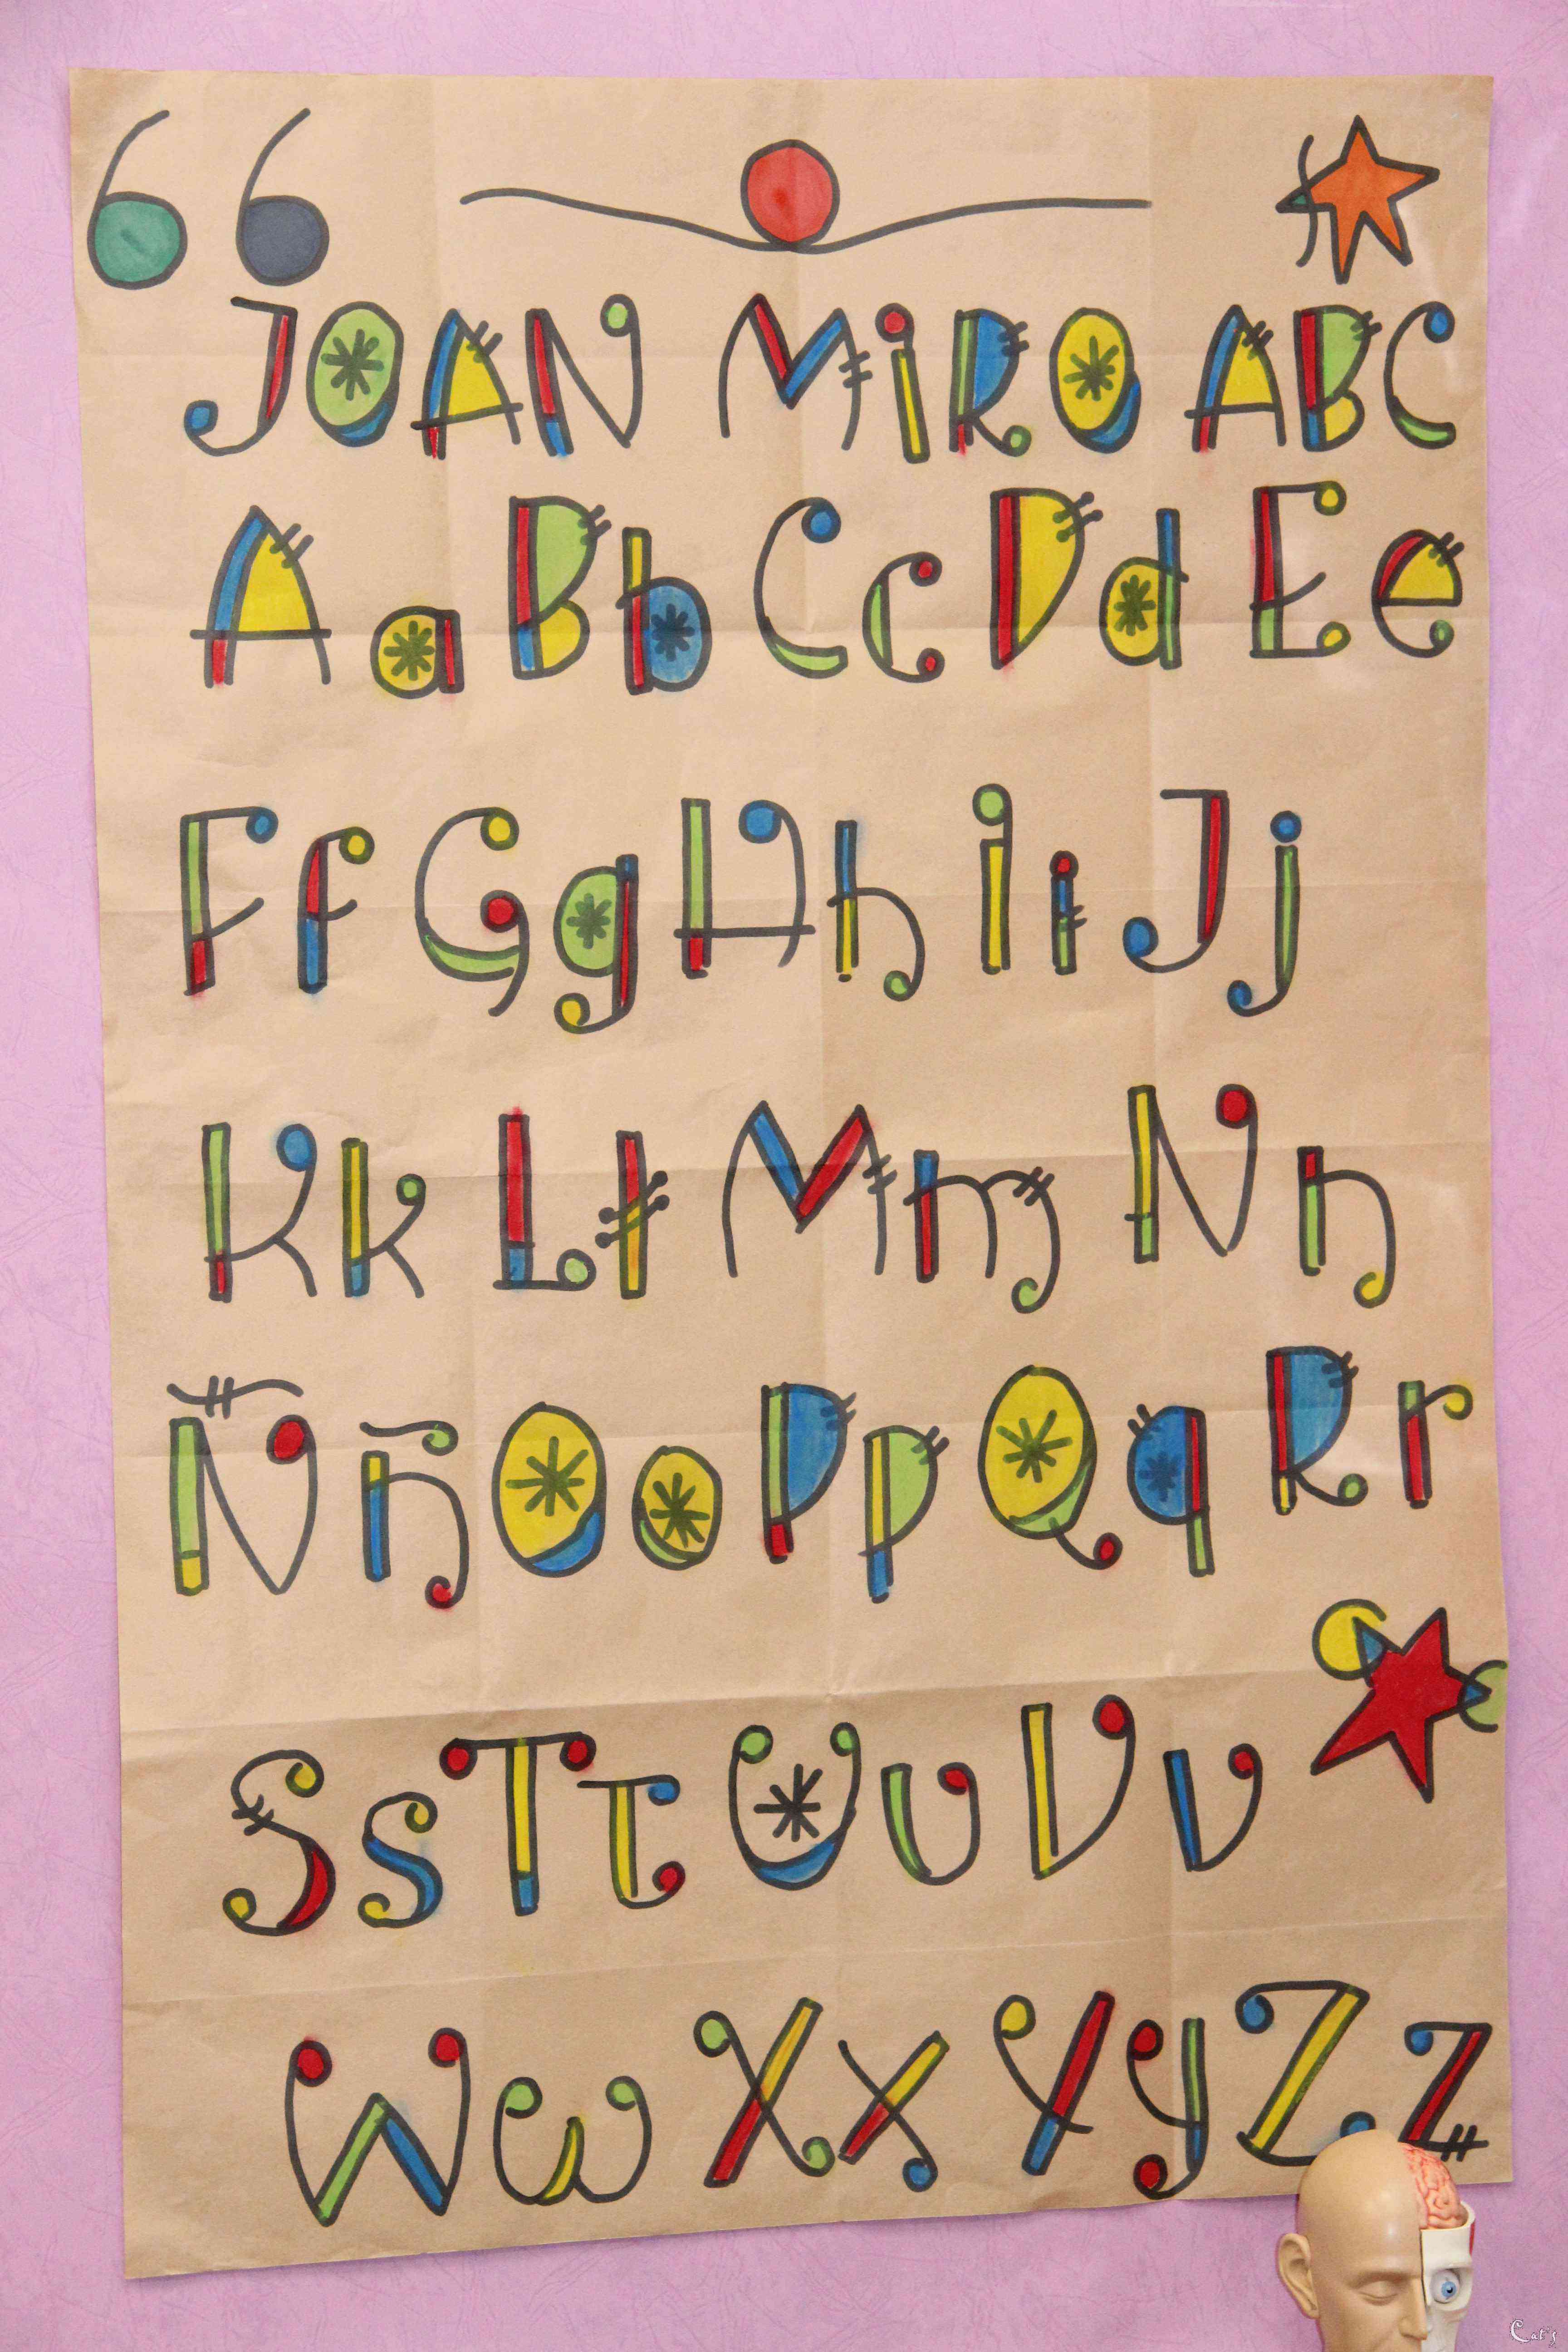 JOAN MiRO ABC
Aa Bb Cc Dd Ee
Ff Gg Hh Ii Jj
Kk Ll Mm Nn
Ññ Oo Pp Qq Rr
Ss Tt Uu Vv
Ww Xx Yy Zz
Cat's